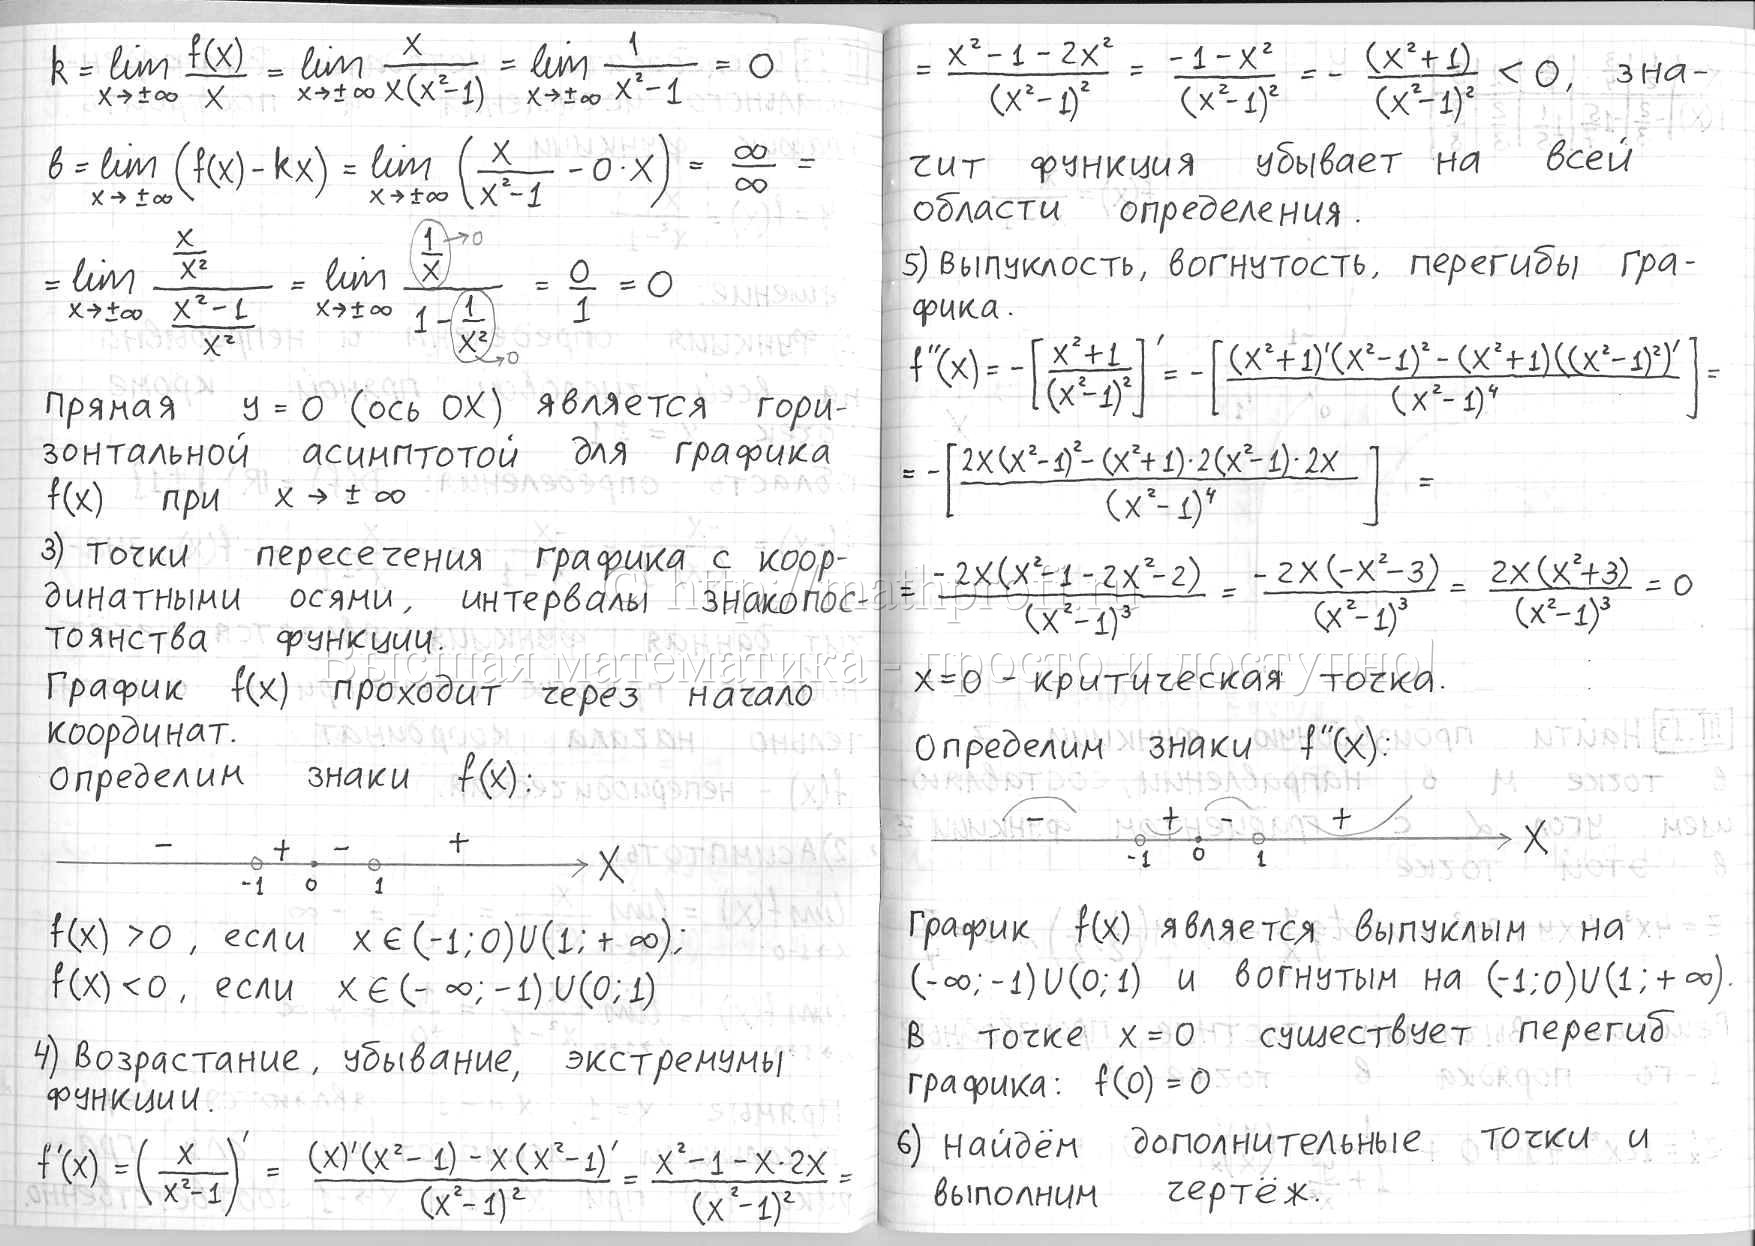 k = lim x→±∞ f(x)/x = lim x→±∞ x/(x(x²-1)) = lim x→±∞ 1/(x²-1) = 0
b = lim x→±∞ (f(x) - kx) = lim x→±∞ (x/(x²-1) - 0·x) = ∞/∞ =
= lim x→±∞ (x/x²)/((x²-1)/x²) = lim x→±∞ (1/x →0)/(1 - 1/x² →0) = 0/1 = 0
Прямая y = 0 (ось OX) является гори-
зонтальной асимптотой для графика
f(x) при x → ± ∞
3) Точки пересечения графика с коор-
динатными осями, интервалы знакопос-
тоянства функции.
График f(x) проходит через начало
координат.
Определим знаки f(x):
- + - +
-1 0 1 X
f(x) > 0, если x ∈ (-1; 0) U (1; + ∞);
f(x) < 0, если x ∈ (- ∞; -1) U (0; 1)
4) Возрастание, убывание, экстремумы
функции.
f'(x) = (x/(x²-1))' = ((x)'(x²-1) - x(x²-1)')/(x²-1)² = (x²-1-x·2x)/(x²-1)² =
= (x²-1-2x²)/(x²-1)² = (-1-x²)/(x²-1)² = - (x²+1)/(x²-1)² < 0, зна-
чит функция убывает на всей
области определения.
5) Выпуклость, вогнутость, перегибы гра-
фика.
f''(x) = -[(x²+1)/(x²-1)²]' = -[((x²+1)'(x²-1)² - (x²+1)((x²-1)²)')/(x²-1)⁴] =
= -[(2x(x²-1)² - (x²+1)·2(x²-1)·2x)/(x²-1)⁴] =
= -2x(x²-1-2x²-2)/(x²-1)³ = -2x(-x²-3)/(x²-1)³ = 2x(x²+3)/(x²-1)³ = 0
x=0 - критическая точка.
Определим знаки f''(x):
- + - +
-1 0 1 X
График f(x) является выпуклым на
(-∞; -1) U (0; 1) и вогнутым на (-1; 0) U (1; + ∞).
В точке x = 0 существует перегиб
графика: f(0) = 0
6) Найдём дополнительные точки и
выполним чертёж.
© http://mathprofi.ru
Высшая математика - просто и доступно!